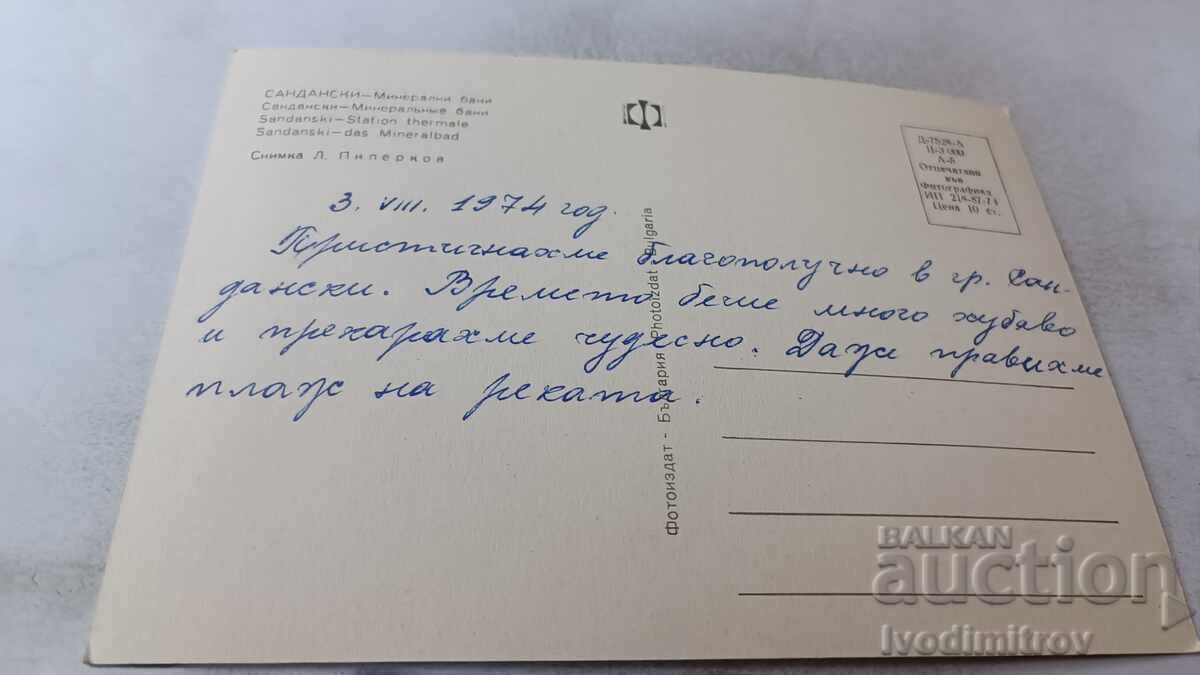 САНДАНСКИ—Минерални бани
Сандански—Минеральные бани
Sandanski—Station thermale
Sandanski—das Mineralbad
Снимка Л. Пиперков
Д-7528-А
А-6
Отпечатани
във
Фотографика
ИП 218-87-74
Цена 10 ст.
3. VIII. 1974 год.
Пристигнахме благополучно в гр. Сан-
дански. Времето беше много хубаво
и прекарахме чудесно. Даже правихме
плаж на реката.
Фотоиздат - България Photoizdat - Bulgaria
BALKAN
auction
Ivodimitrov